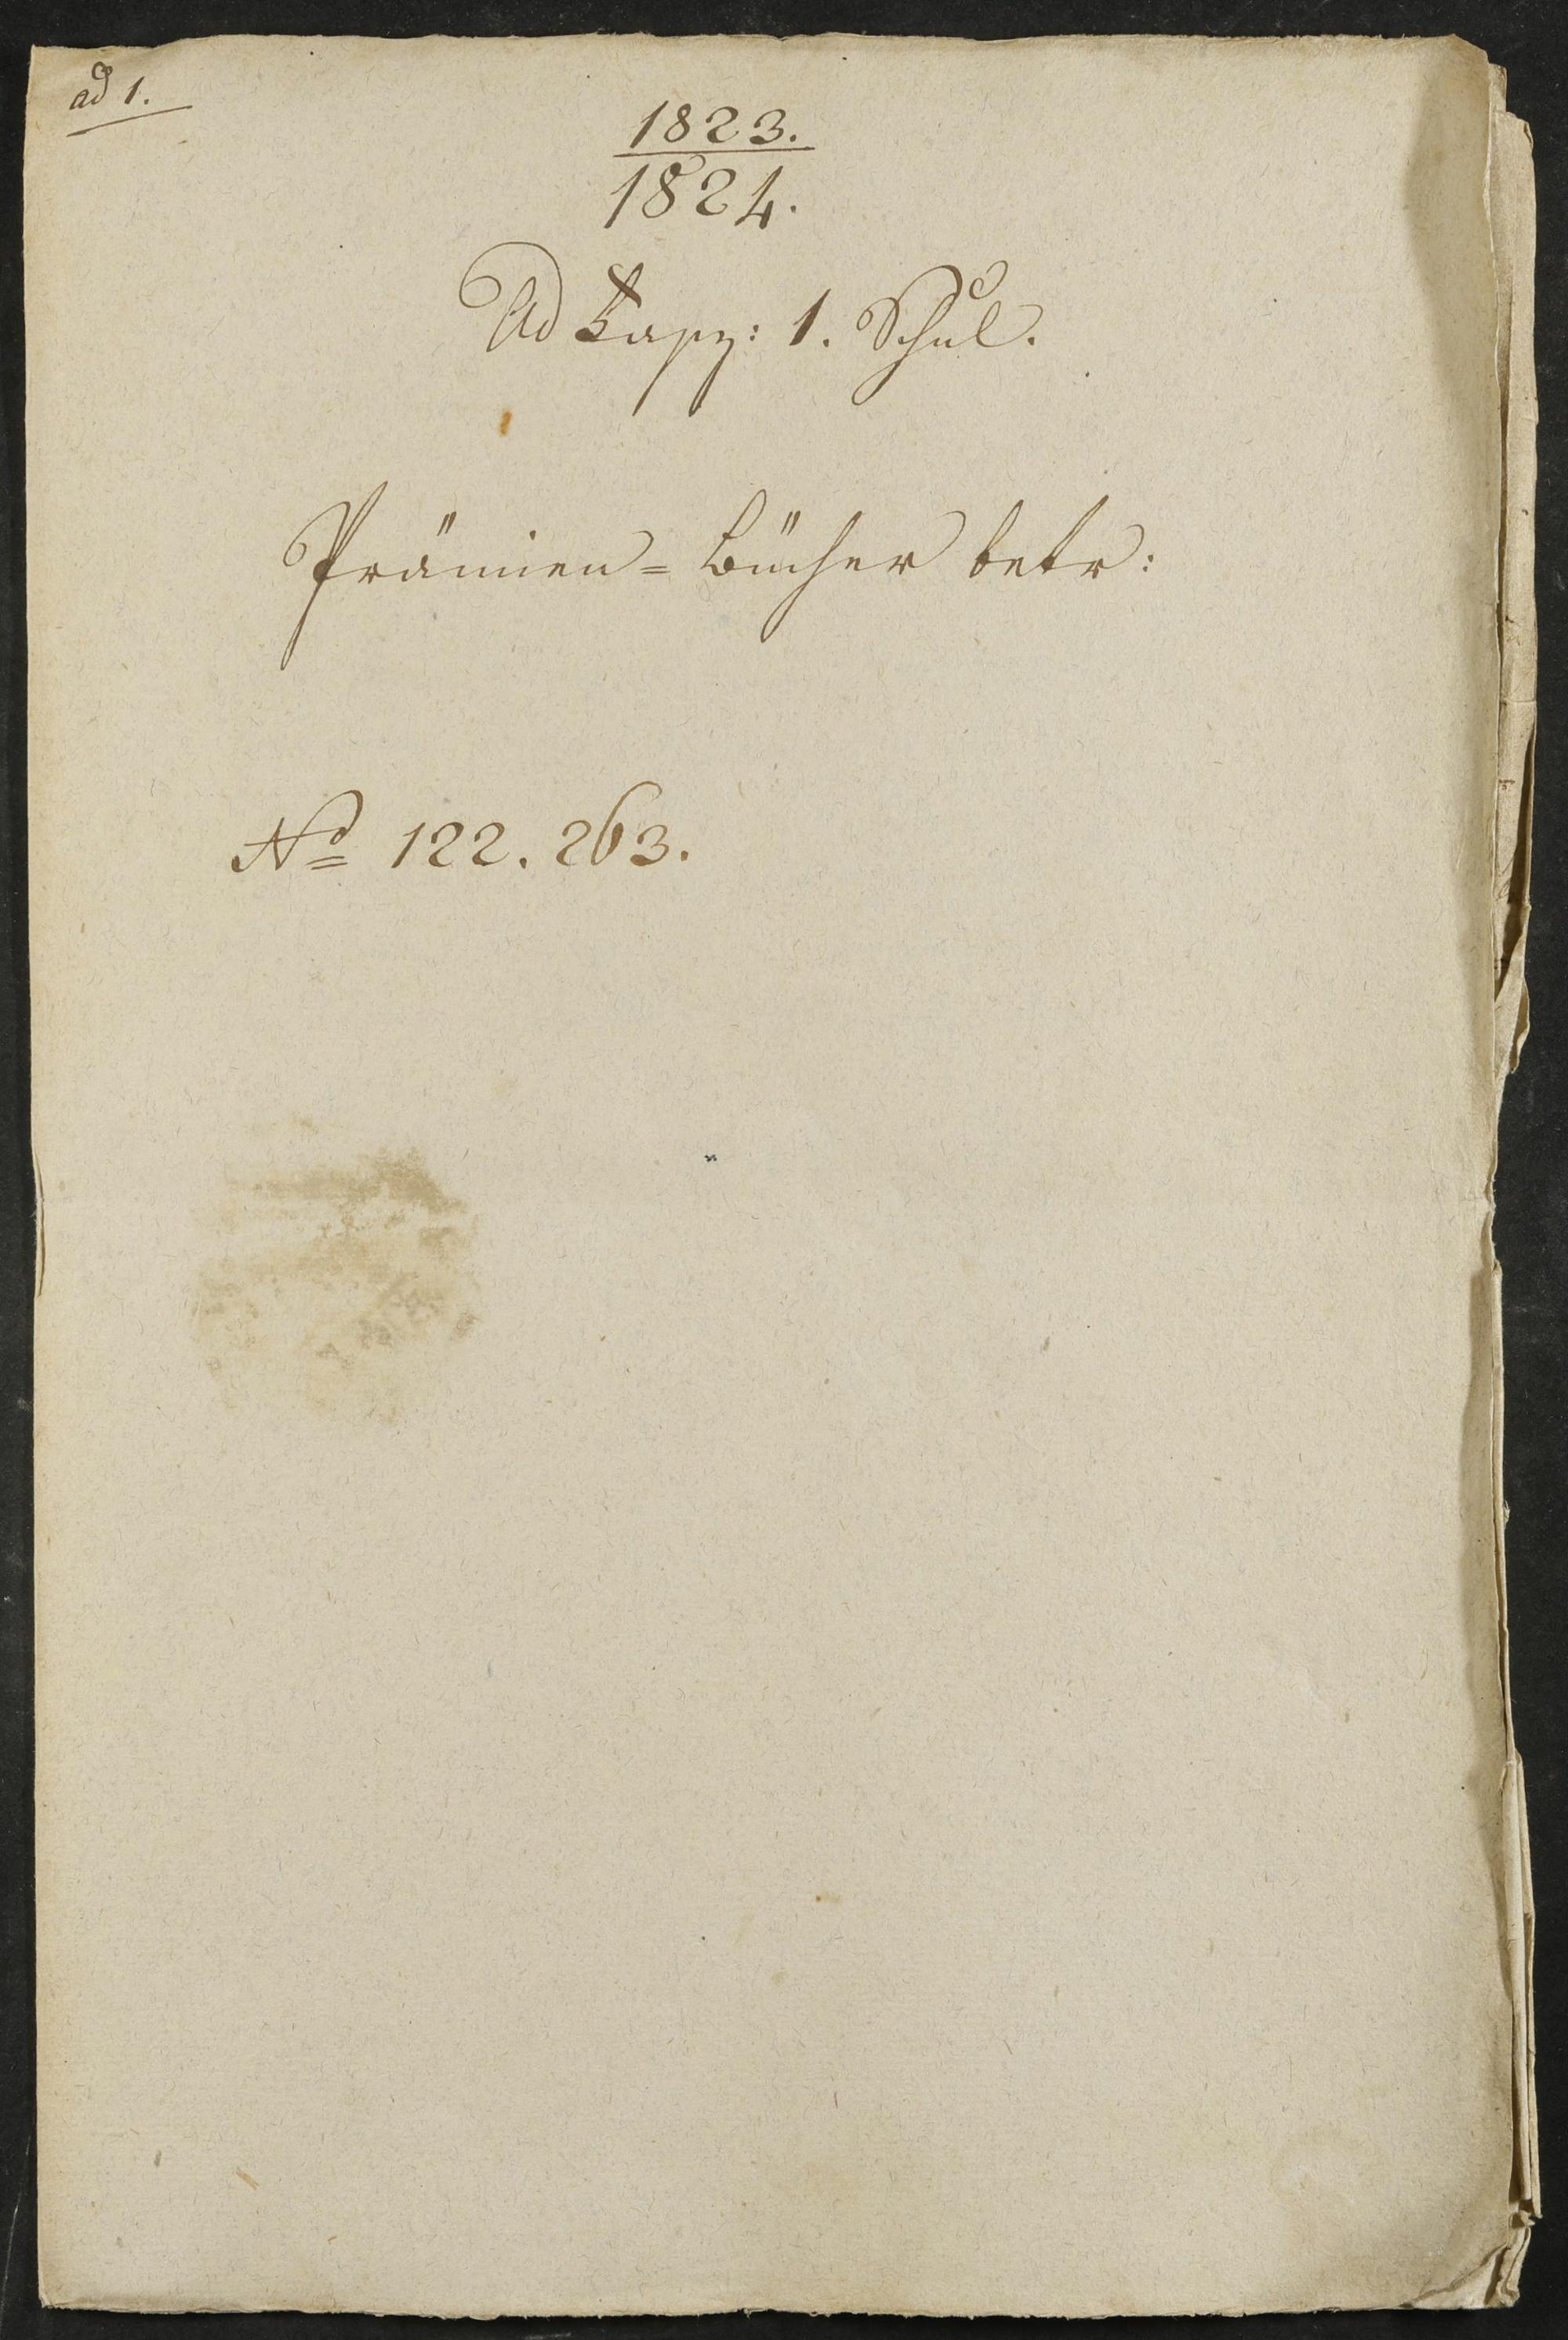 ad 1.
1823.
1824.
Ad Fasz: 1. Schul.
Prämien=Bücher betr:
No 122. 263.